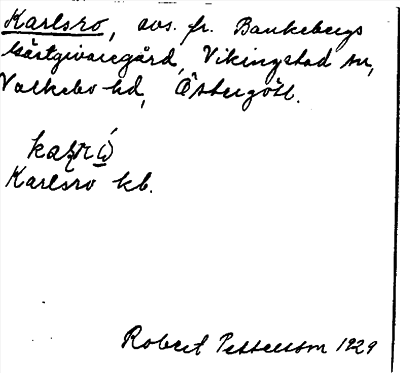 Karlsro, avs. fr. Bankebergs
Gästgivaregård, Vikingstad sn,
Valkebo hd, Östergötl.
Karlsro kb.
Robert Pettersson 1929